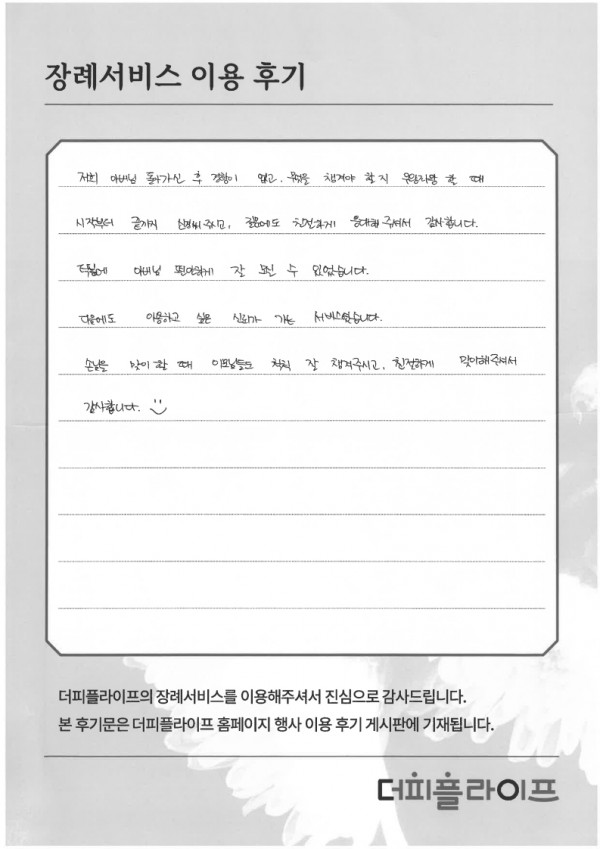 장례서비스 이용 후기
저희 아버님 돌아가신 후 경황이 없고, 무엇을 챙겨야 할지 우왕좌왕 할 때
시작부터 끝까지 신경써주시고, 질문에도 친절하게 응대해주셔서 감사합니다.
덕분에 아버님 편안하게 잘 모실 수 있었습니다.
다음에도 이용하고 싶은 신뢰가 가는 서비스였습니다.
손님을 맞이 할 때 이모님들도 척척 잘 챙겨주시고, 친절하게 맞아해주셔서
감사합니다.
더피플라이프의 장례서비스를 이용해주셔서 진심으로 감사드립니다.
본 후기문은 더피플라이프 홈페이지 행사 이용 후기 게시판에 기재됩니다.
더피플라이프